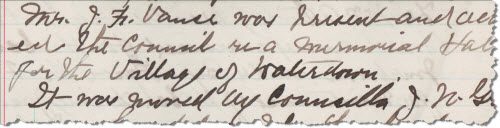 Mr. J. H. Vance was present and ack
ed the Council re a Memorial Hall
for the Village of Waterdown.
It was moved by Councillor J. W. G